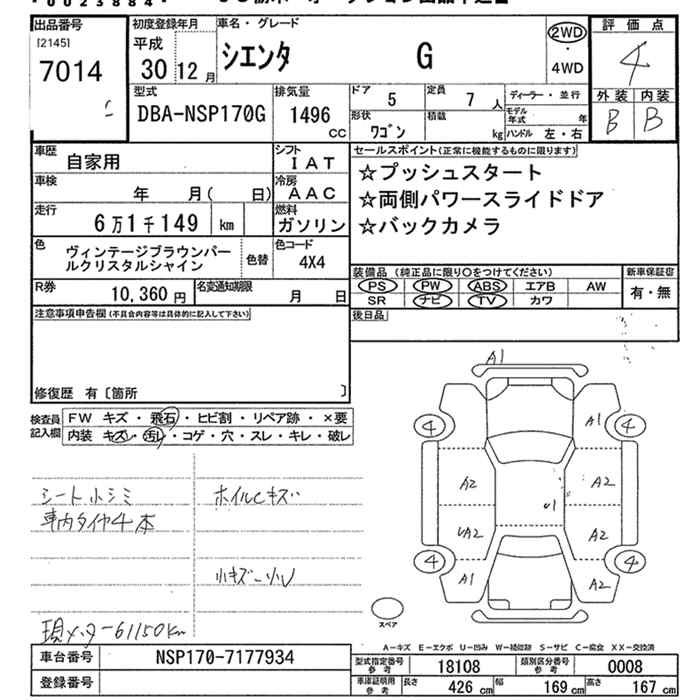 出品番号
[2145]
7014
初度登録年月
平成
30 12 月
車名・グレード
シエンタ G
2WD
・
4WD
評価点
4
外装 内装
B B
型式
DBA-NSP170G
排気量
1496
CC
ドア
5
定員
7 人
ディーラー・並行
モデル年式 年
形状
ワゴン
積載
kg
ハンドル 左・右
車歴
自家用
シフト
IAT
車検
年 月( 日)
冷房
AAC
走行
6万1千149 km
燃料
ガソリン
色
ヴィンテージブラウンパー
ルクリスタルシャイン
色替
色コード
4X4
R券
10,360 円
名変通知期限
月 日
セールスポイント(正常に機能するものに限ります)
☆プッシュスタート
☆両側パワースライドドア
☆バックカメラ
装備品 (純正品に限り○をつけてください)
PS PW ABS エアB AW
SR ナビ TV カワ
新車保証書
有・無
後日品
注意事項申告欄(不具合内容等は具体的に記入して下さい)
修復歴 有〔箇所 〕
検査員
記入欄
FW キズ・飛石・ヒビ割・リペア跡・×要
内装 キズ・汚レ・コゲ・穴・スレ・キレ・破レ
シート小シミ
車内タイヤ4本
ホイルCキズ
小キズ
現メーター61150km
A1
A1
4 4
A2 A2
A2
A2
4 4
A1 A2
スペア
A－キズ E－エクボ U－凹み W－補修跡 S－サビ C－腐食 XX－交換済
車台番号
NSP170-7177934
登録番号
型式指定番号
参考
18108
類別区分番号
参考
0008
車庫証明用
参考
長さ
426 cm
幅
169 cm
高さ
167 cm